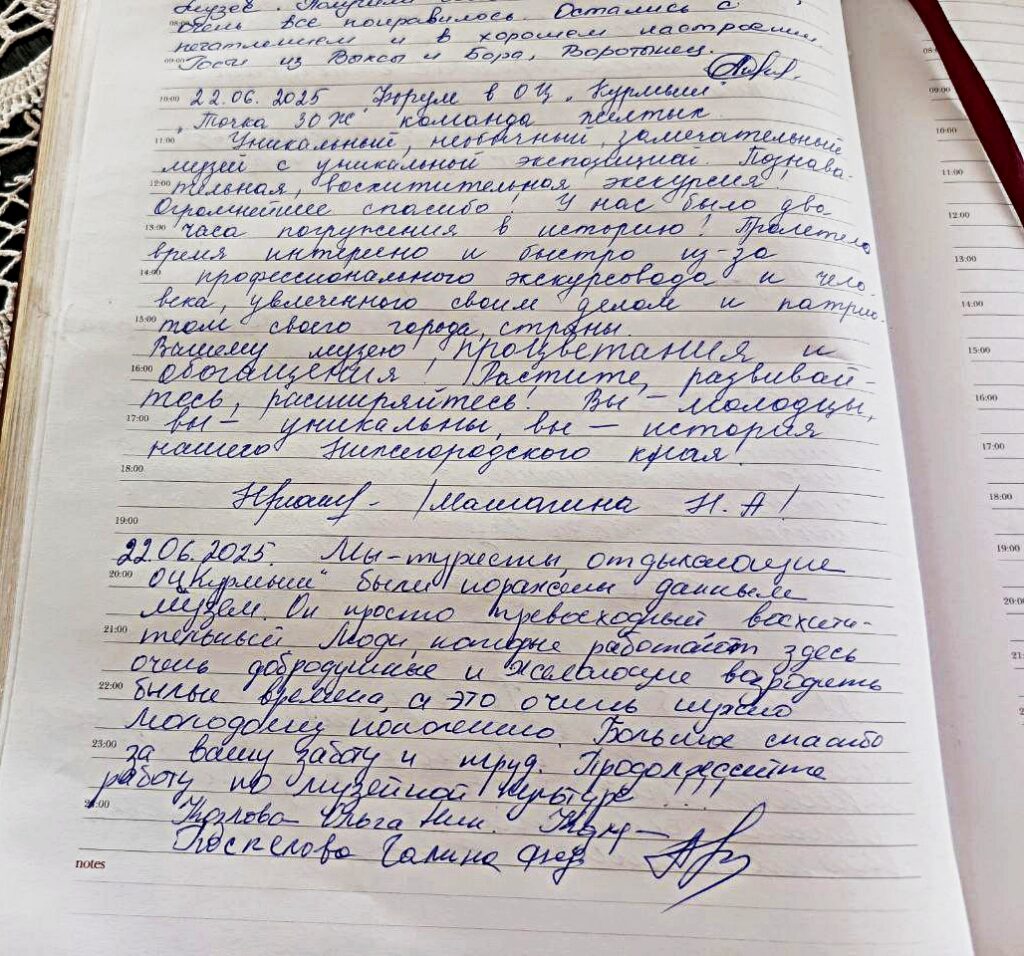 музов. Получили
очень все понравилось. Остались с
печатлением и в хорошем настроении.
Гости из Выксы и Бора, Воротынец.
22.06.2025 Форум в ОЦ "Курмыш"
"Точка ЗОЖ" команда желтых
Уникальный, необычный, замечательный
музей с уникальный экспозицией. Познава-
тельная, восхитительная экскурсия!
Огромнейшее спасибо! У нас было два
часа погружения в историю! Пролетело
время интересно и быстро из-за
профессионального экскурсовода и чело-
века, увлеченного своим делом и патрио-
том своего города, страны.
Вашему музею процветания и
обогащения! Растите, развивай-
тесь, расширяйтесь! Вы - молодцы,
вы - уникальны, вы - история
нашего Нижегородского края!
/Машагина Н.А/
22.06.2025. Мы-туристы, отдыхающие
ОЦ"Курмыш" были поражены данным
музеем. Он просто превосходный восхити-
тельный Люди, которые работают здесь
очень добродушные и желающие возродить
былые времена, а это очень нужно
молодому поколению. Большое спасибо
за вашу заботу и труд. Продолжайте
работу по музейной культуре!!!
Козлова Ольга Ник.
Поспелова Галина Фед.
09:00
10:00
11:00
12:00
13:00
14:00
15:00
16:00
17:00
18:00
19:00
20:00
21:00
22:00
23:00
notes
09:00
10:00
11:00
12:00
13:00
14:00
15:00
16:00
17:00
18:00
19:00
20:00